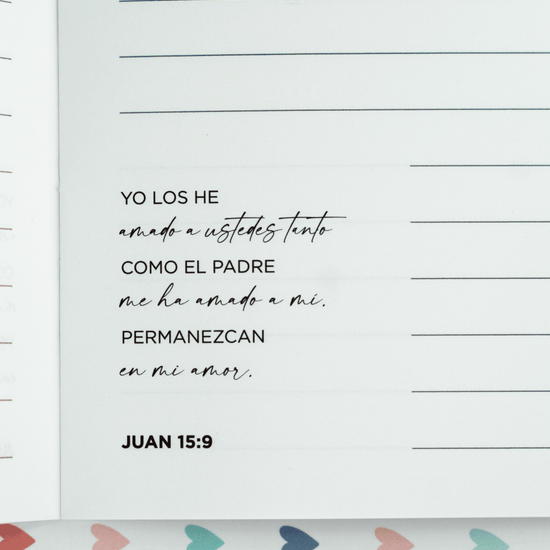 YO LOS HE
amado a ustedes tanto
COMO EL PADRE
me ha amado a mí.
PERMANEZCAN
en mi amor.
JUAN 15:9